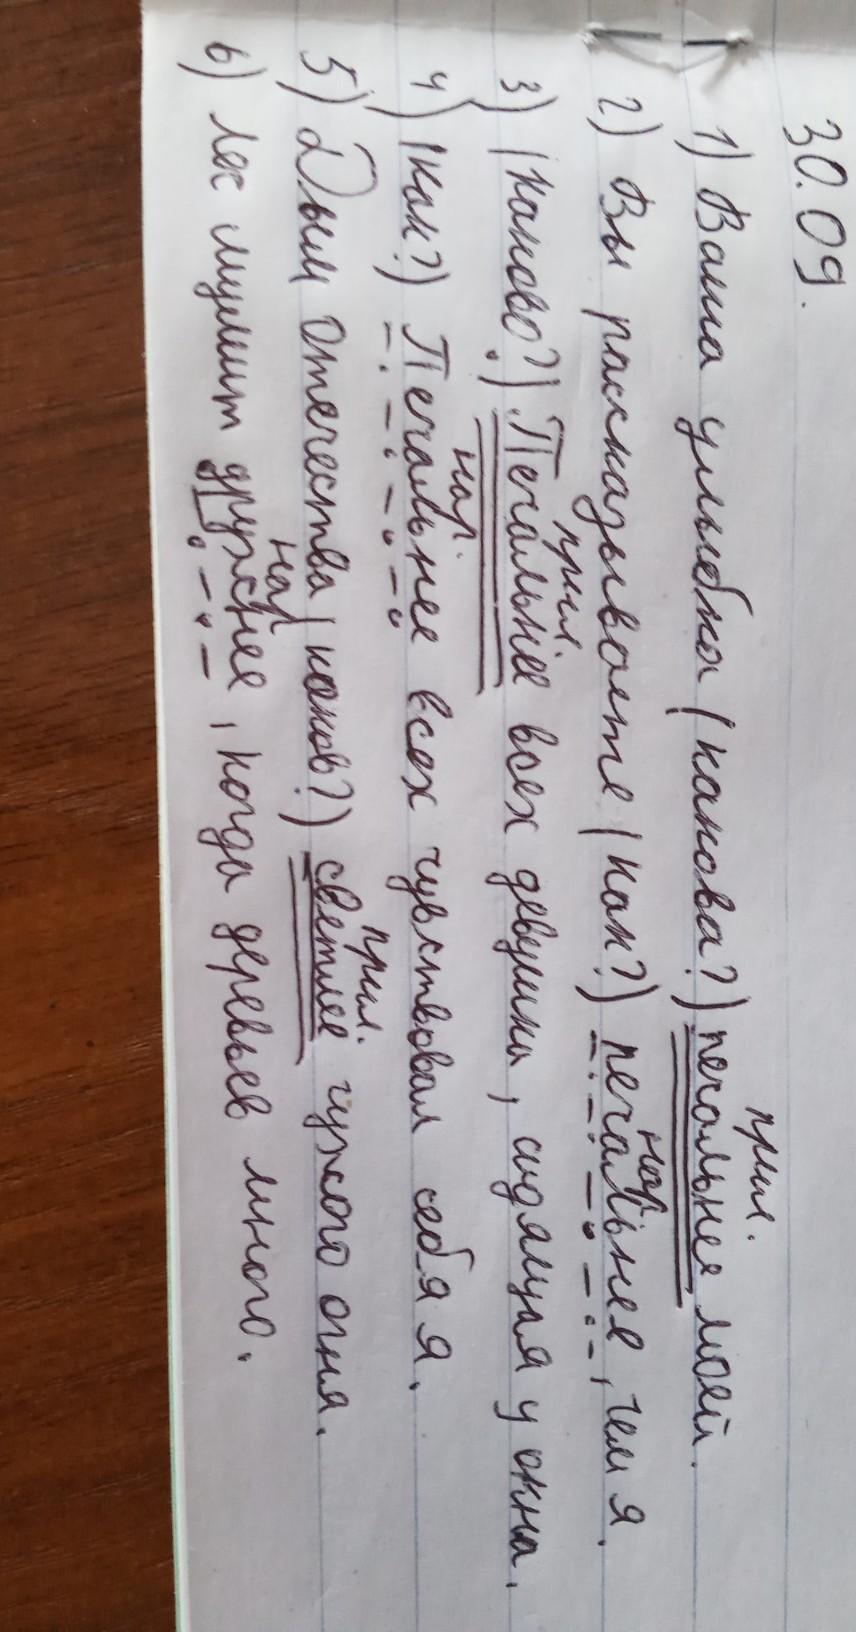 30.09.
прил.
1) Ваша улыбка (какова?) печальнее моей.
нар.
2) Вы рассказываете (как?) печальнее, чем я.
прил.
3) (Каково?) Печальнее всех девушка, сидящая у окна.
нар.
4) (как?) Печальнее всех чувствовал себя я.
прил.
5) Дым Отечества (каков?) светлее чужого огня.
нар
6) Лес шумит дружнее, когда деревьев много.